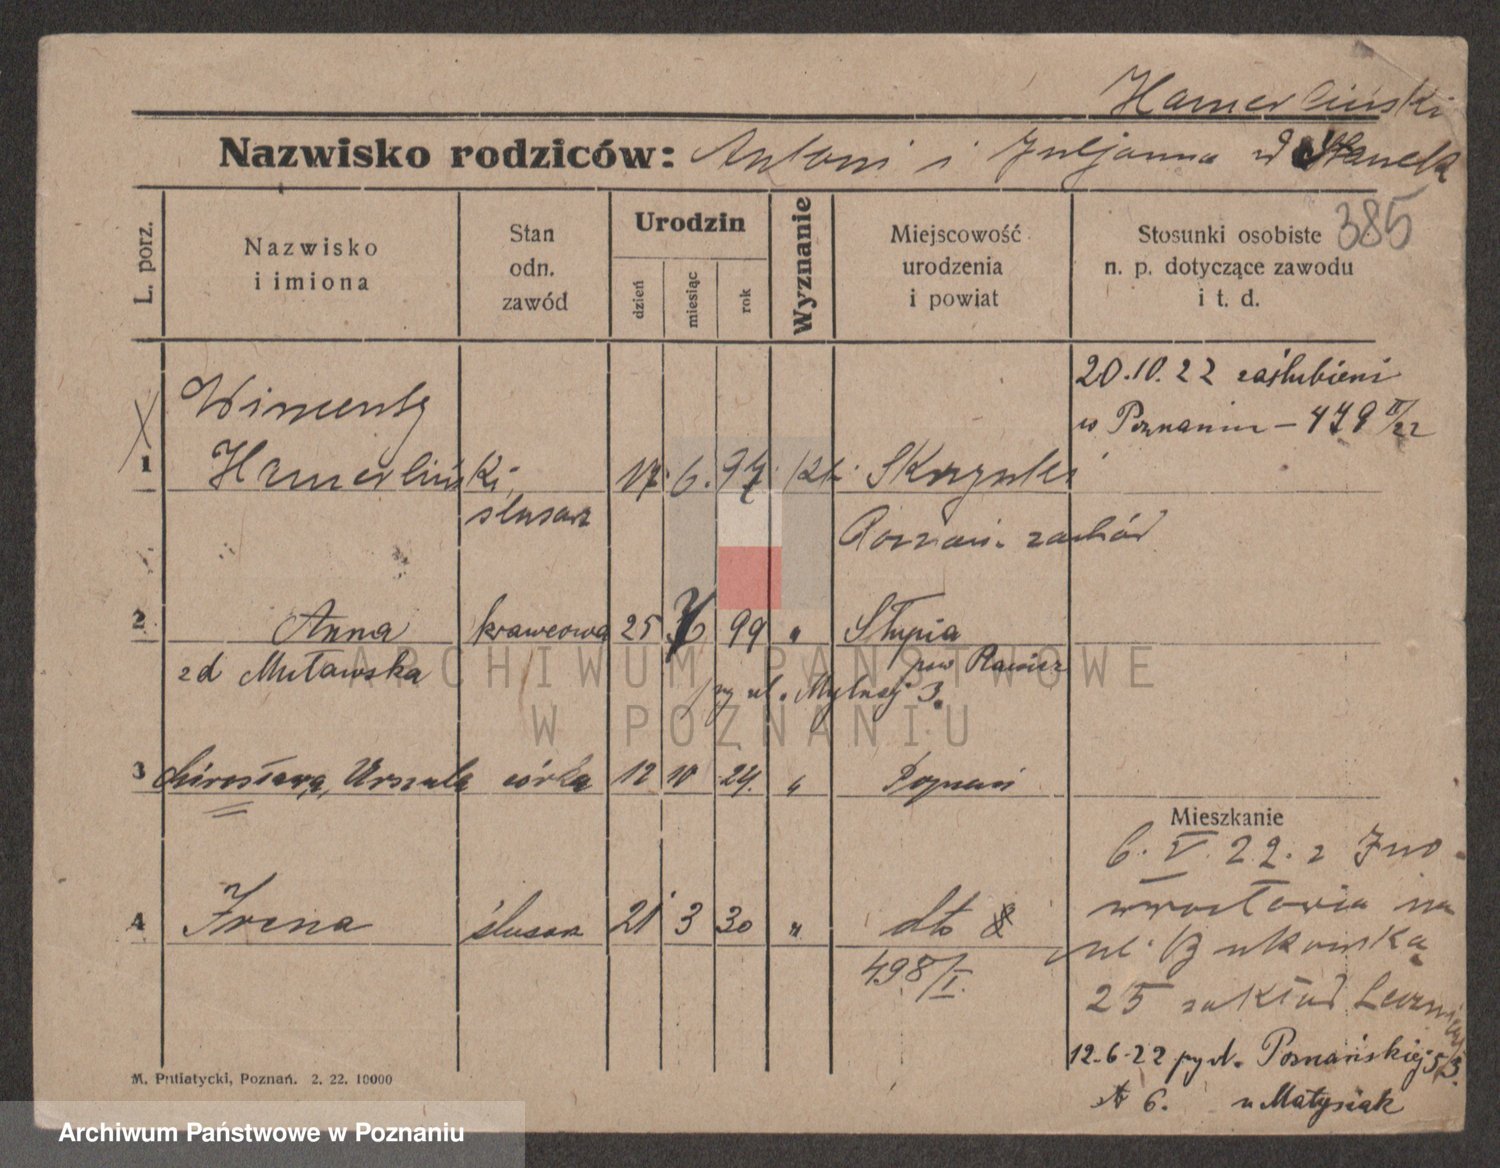 Hamerliński
Nazwisko rodziców: Antoni i Juljanna zd
385
L. porz.
Nazwisko i imiona
Stan odn. zawód
Urodzin
dzień
miesiąc
rok
Wyznanie
Miejscowość urodzenia i powiat
Stosunki osobiste n. p. dotyczące zawodu i t. d.
20.10.22 zaślubieni
w Poznaniu – 479 II/22
Wincenty
1 Hamerliński 17. 6. 97. kt. Skrzynki
ślusarz
Poznań. zachód
2 Anna krawcowa 25 99 " Słupia
zd Muławska pow Rawicz
przy ul. Mylnej 3.
ARCHIWUM PAŃSTWOWE
W POZNANIU
3 Mirosława, Urszula córka 12 10 24. " Poznań
Mieszkanie
6. V. 22. z Ino-
wrocławia na
4 Irena 21 3 30 " dto
ul. Bukowską
498/I.
25 zakład Leczniczy
12-6-22 przy ul. Poznańskiej 53.
6. u Matysiak
M. Putiatycki, Poznań. 2. 22. 10000
Archiwum Państwowe w Poznaniu